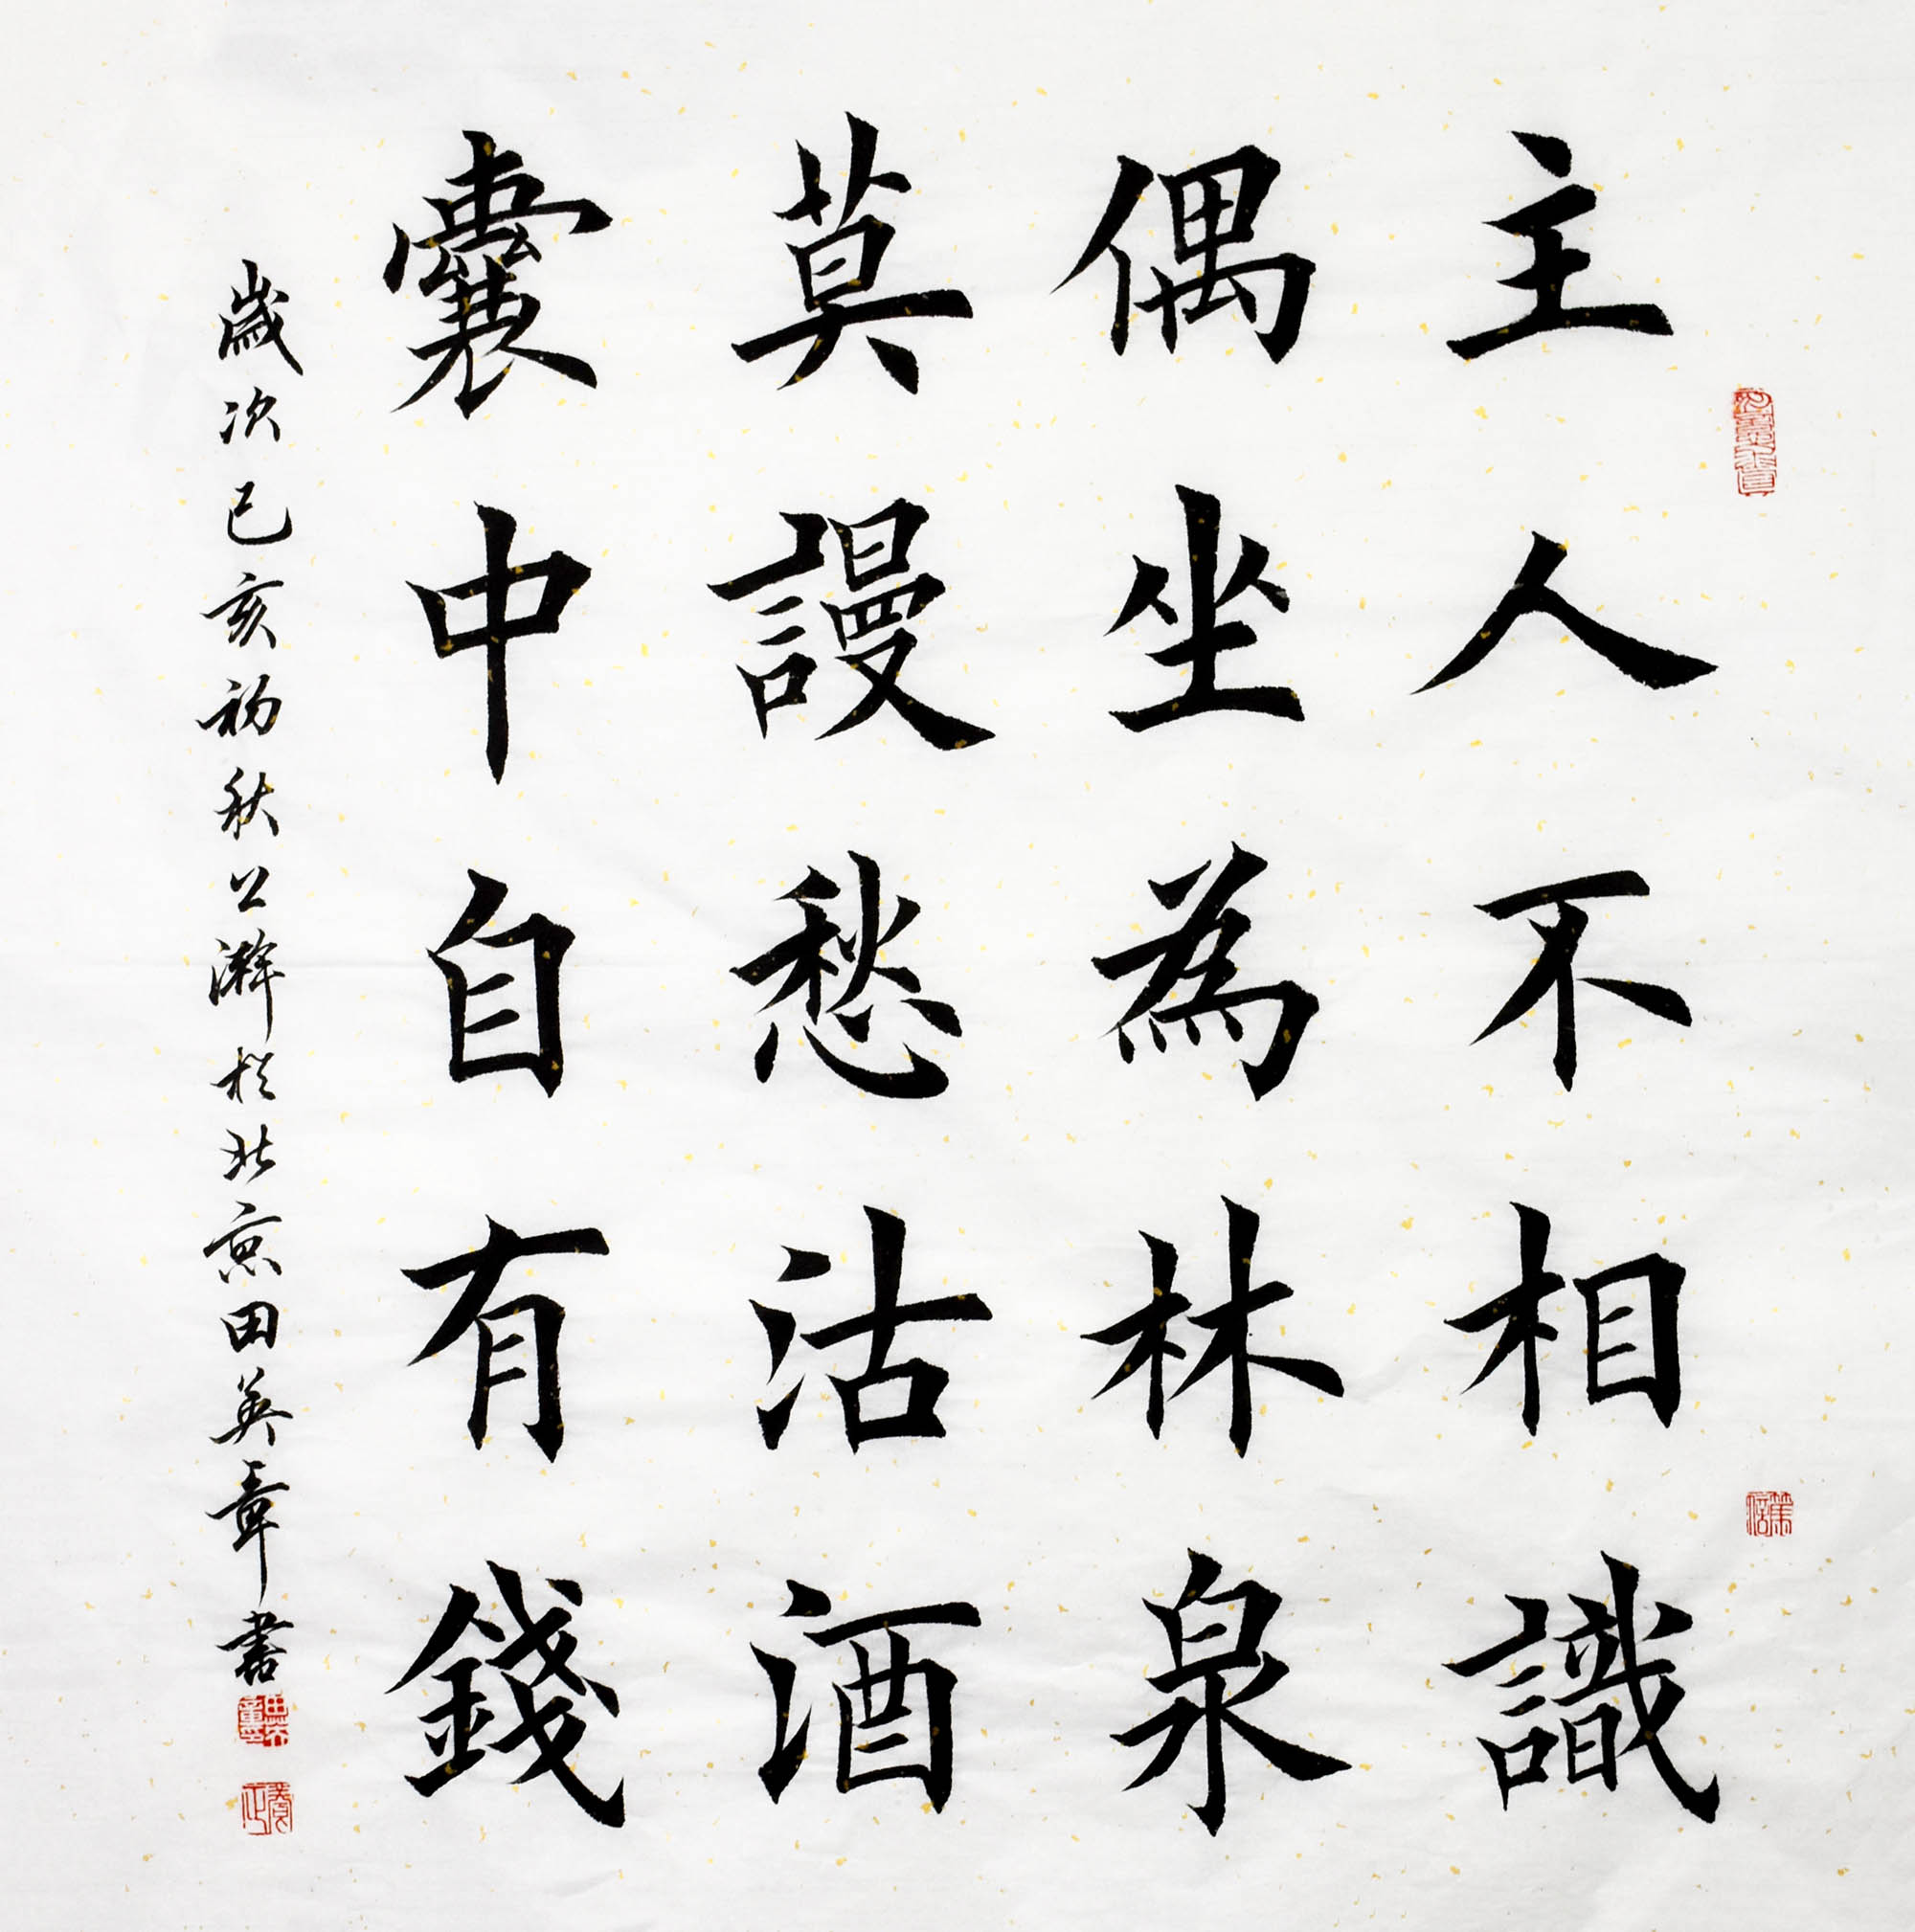 主人不相識
偶坐為林泉
莫謾愁沽酒
囊中自有錢
歲次己亥初秋公澣於北京田英章書